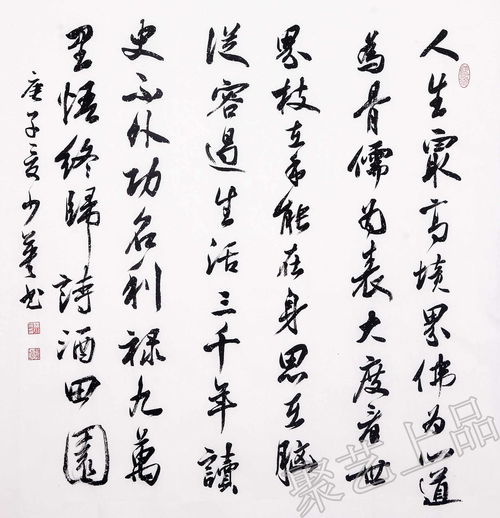 人生最高境界佛为心道
為骨儒为表大度看世
界技在手能在身思在脑
從容過生活三千年讀
史不外功名利禄九萬
里悟终歸詩酒田園
庚子夏少书
聚艺上品